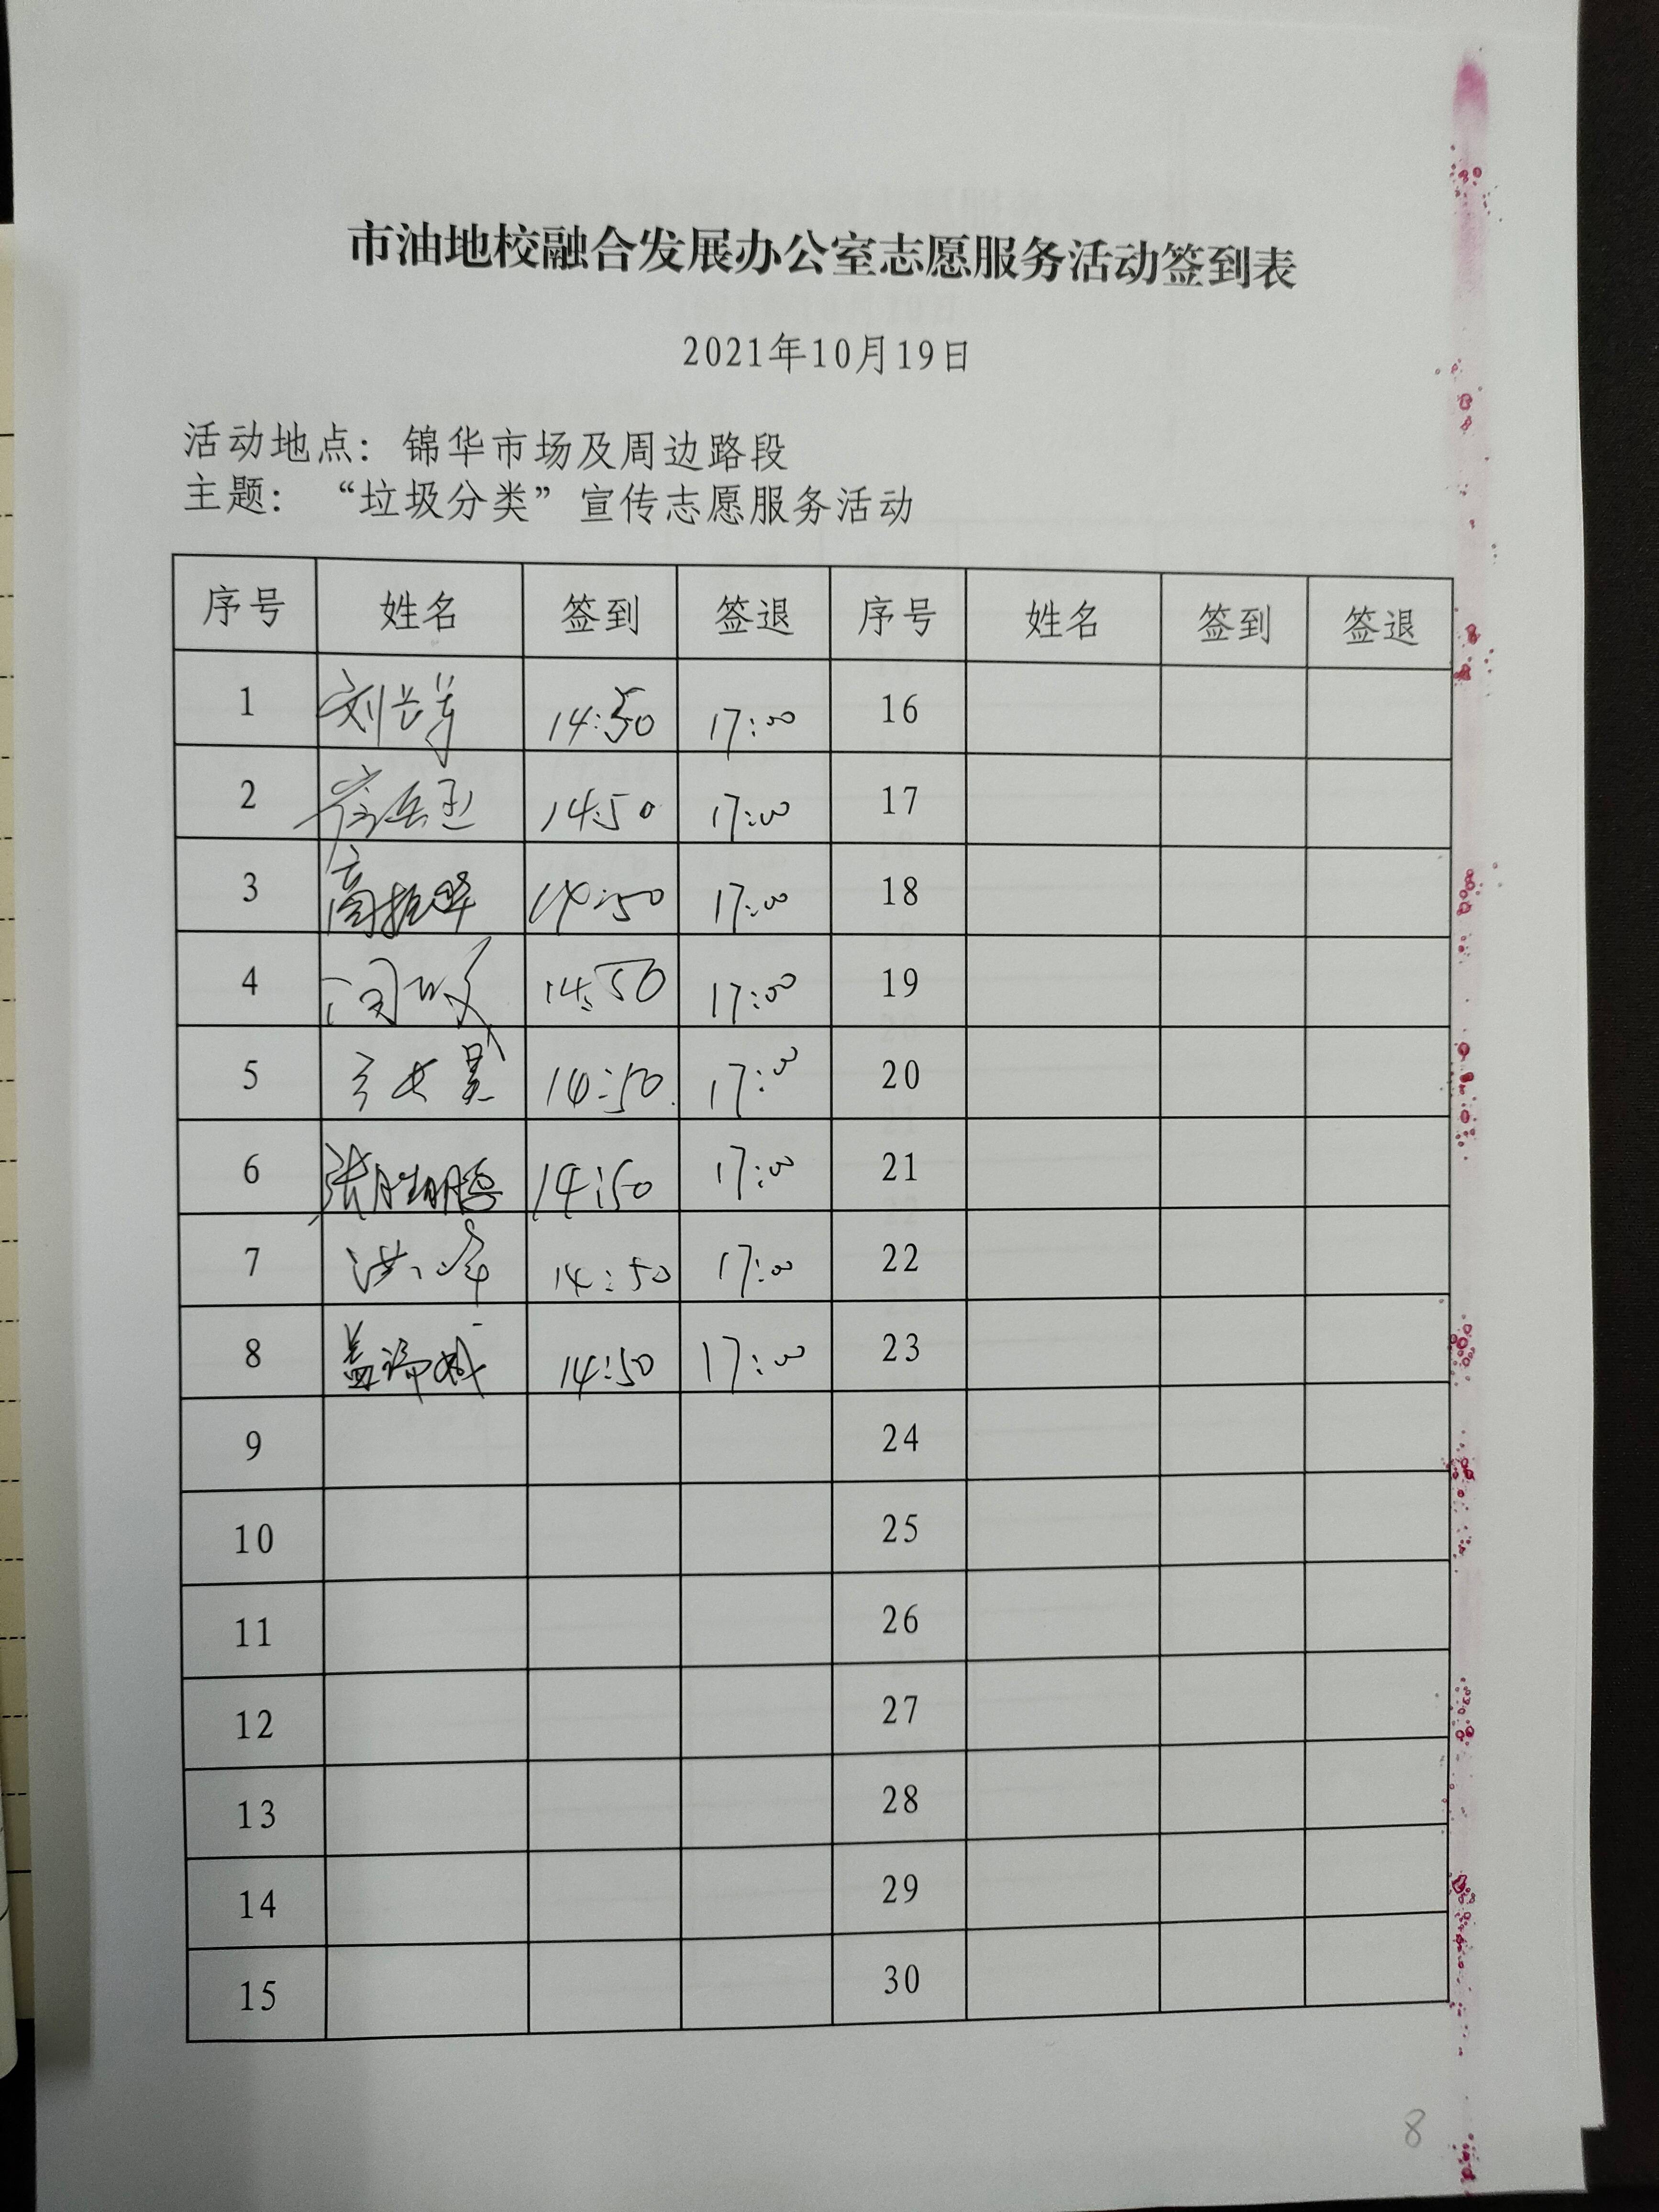 市油地校融合发展办公室志愿服务活动签到表
2021年10月19日
活动地点：锦华市场及周边路段
主题：“垃圾分类”宣传志愿服务活动
序号 姓名 签到 签退 序号 姓名 签到 签退
1 刘 14:50 17:00 16
2 14:50 17:00 17
3 高振 14:50 17:00 18
4 14:50 17:00 19
5 14:50 17:00 20
6 张胜鹏 14:50 17:00 21
7 洪峰 14:50 17:00 22
8 盖 14:50 17:00 23
9 24
10 25
11 26
12 27
13 28
14 29
15 30
8